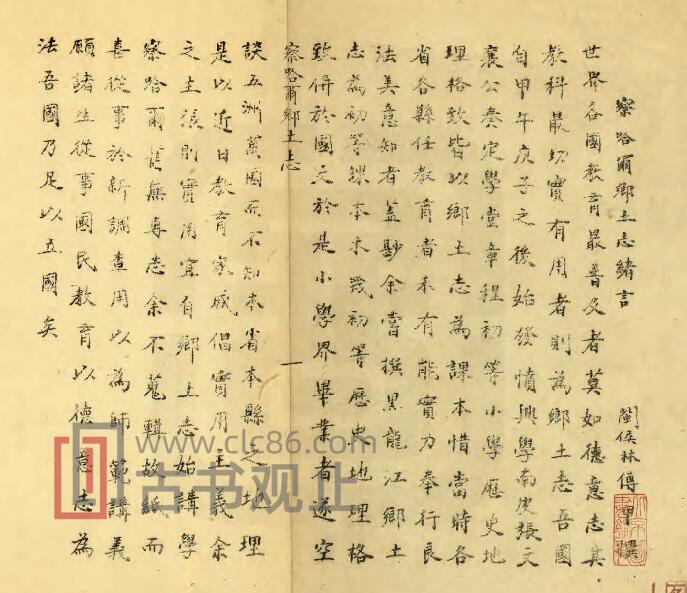 察哈爾鄉土志緒言
閩侯林傳甲撰
世界各國教育最普及者莫如德意志其
教科最切實有用者則為鄉土志吾國
自甲午庚子之後始發憤興學南皮張文
襄公奏定學堂章程初等小學歷史地
理格致皆以鄉土志為課本惜當時各
省各縣任教育者未有能實力奉行良
法美意知者蓋尠余嘗撰黑龍江鄉土
志為初等課本未幾初等歷史地理格
致併於國文於是小學界畢業者遂空
察哈爾鄉土志
一
談五洲萬國而不知本省本縣之地理
是以近日教育家咸倡實用主義余
之主張則實用宜自鄉土志始講學
察哈爾舊無專志余不蒐輯故紙而
喜從事於新調查用以為師範講義
願諸生從事國民教育以德意志為
法吾國乃足以立國矣
www.clc86.com
古书观上